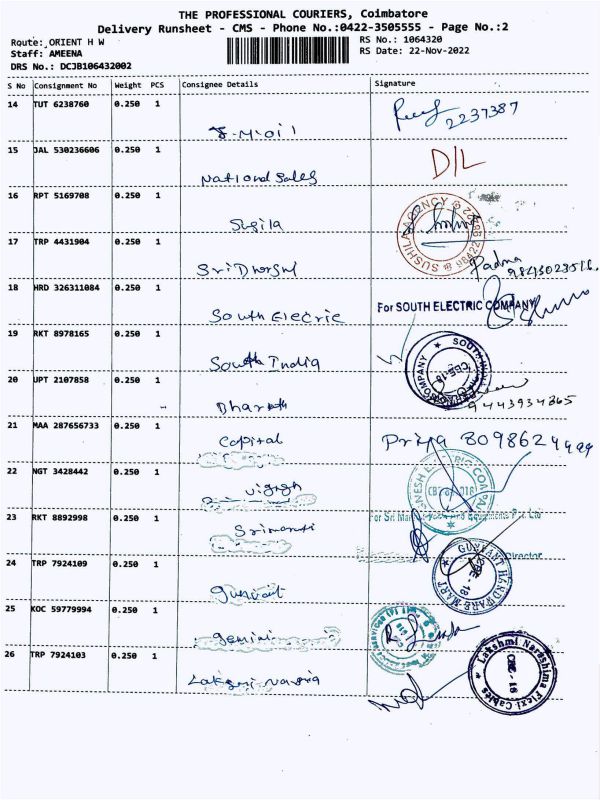 THE PROFESSIONAL COURIERS, Coimbatore
Delivery Runsheet - CMS - Phone No.:0422-3505555 - Page No.:2
Route: ORIENT H W
RS No.: 1064320
Staff: AMEENA
RS Date: 22-Nov-2022
DRS No.: DCJB106432002
S No Consignment No Weight PCS Consignee Details Signature
14 TUT 6238760 0.250 1
2237387
15 JAL 530236606 0.250 1 National Sales D/L
16 RPT 5169708 0.250 1 Sugila
SUSHILA AGENCY
17 TRP 4431904 0.250 1 Sri Dharshul Padma
18 HRD 326311084 0.250 1 South Electric
For SOUTH ELECTRIC COMPANY
19 RKT 8978165 0.250 1 South India
SOUTH INDIA COMPANY CBE-18
20 UPT 2107858 0.250 1 Dharath
9443934865
21 MAA 287656733 0.250 1 Capital Priya 8098624999
22 NGT 3428442 0.250 1 Vignesh
ELECTRIC COMPANY
23 RKT 8892998 0.250 1 Srimaruti
For Sri Equipments Pvt Ltd
Director
24 TRP 7924109 0.250 1 gunvant
GUNVANT HARDWARE MART CBE - 18
25 KOC 59779994 0.250 1 gemini
26 TRP 7924103 0.250 1 Lakshmi
Lakshmi Narashima Flexi Cables CBE - 18